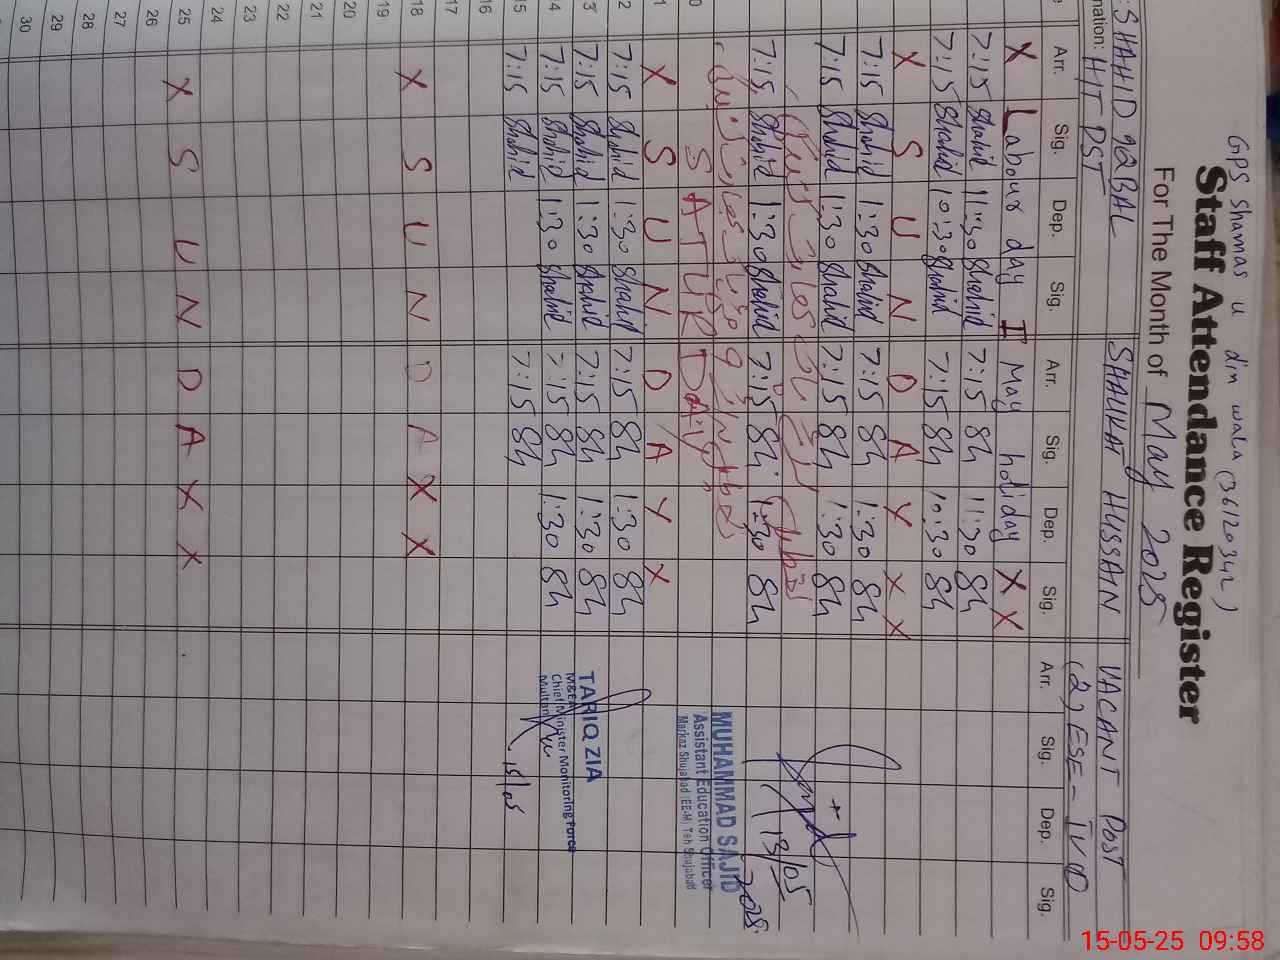 GPS Shamas u din wala (36120342)
Staff Attendance Register
For The Month of May 2025
: SHAHID IQBAL SHAUKAT HUSSAIN VACANT POST
nation: HT DST (2) ESE-
e Arr. Sig. Dep. Sig. Arr. Sig. Dep. Sig. Arr. Sig. Dep. Sig.
X Labour day I May holiday X X
7:15 Shahid 11:30 Shahid 7:15 Sh 11:30 Sh
7:15 Shahid 10:30 Shahid 7:15 Sh 10:30 Sh
X S U N D A Y X X
7:15 Shahid 1:30 Shahid 7:15 Sh 1:30 Sh
7:15 Shahid 1:30 Shahid 7:15 Sh 1:30 Sh
7:15 Shahid 1:30 Shahid 7:15 Sh 1:30 Sh
13/05
2025
MUHAMMAD SAJID
Assistant Education Officer
Markaz Shujabad (EE-M) Teh Shujabad
0 S A T U R D A Y
1 X S U N D A Y X
2 7:15 Shahid 1:30 Shahid 7:15 Sh 1:30 Sh
3 7:15 Shahid 1:30 Shahid 7:15 Sh 1:30 Sh
4 7:15 Shahid 1:30 Shahid 7:15 Sh 1:30 Sh
15 7:15 Shahid 7:15 Sh
TARIQ ZIA
M&EA
Chief Minister Monitoring Force
Multan
15/05
16
17
18 X S U N D A X X
19
20
21
22
23
24
25 X S U N D A Y X
26
27
28
29
30
15-05-25 09:58